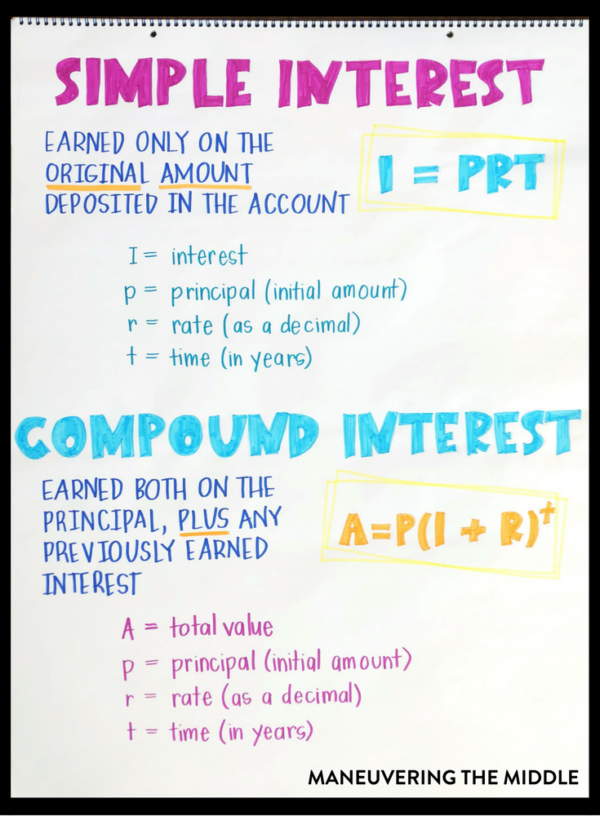 SIMPLE INTEREST
EARNED ONLY ON THE
ORIGINAL AMOUNT
DEPOSITED IN THE ACCOUNT
I = PRT
I = interest
p = principal (initial amount)
r = rate (as a decimal)
t = time (in years)
COMPOUND INTEREST
EARNED BOTH ON THE
PRINCIPAL, PLUS ANY
PREVIOUSLY EARNED
INTEREST
A=P(1 + R)ᵗ
A = total value
p = principal (initial amount)
r = rate (as a decimal)
t = time (in years)
MANEUVERING THE MIDDLE